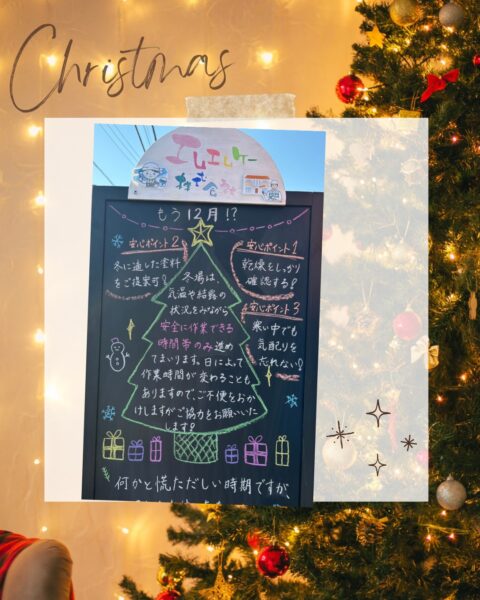 Christmas
エムエムケー
株式会社
もう12月!?
安心ポイント1
乾燥をしっかり
確認する!
安心ポイント2
冬に適した塗料
をご提案可!
安心ポイント3
寒い中でも
気配りを
忘れない!
冬場は、
気温や結露の
状況をみながら
安全に作業できる
時間帯のみ進め
てまいります。日によって
作業時間が変わることも
ありますので、ご不便をおか
けしますがご協力をお願いいた
します!
何かと慌ただしい時期ですが、